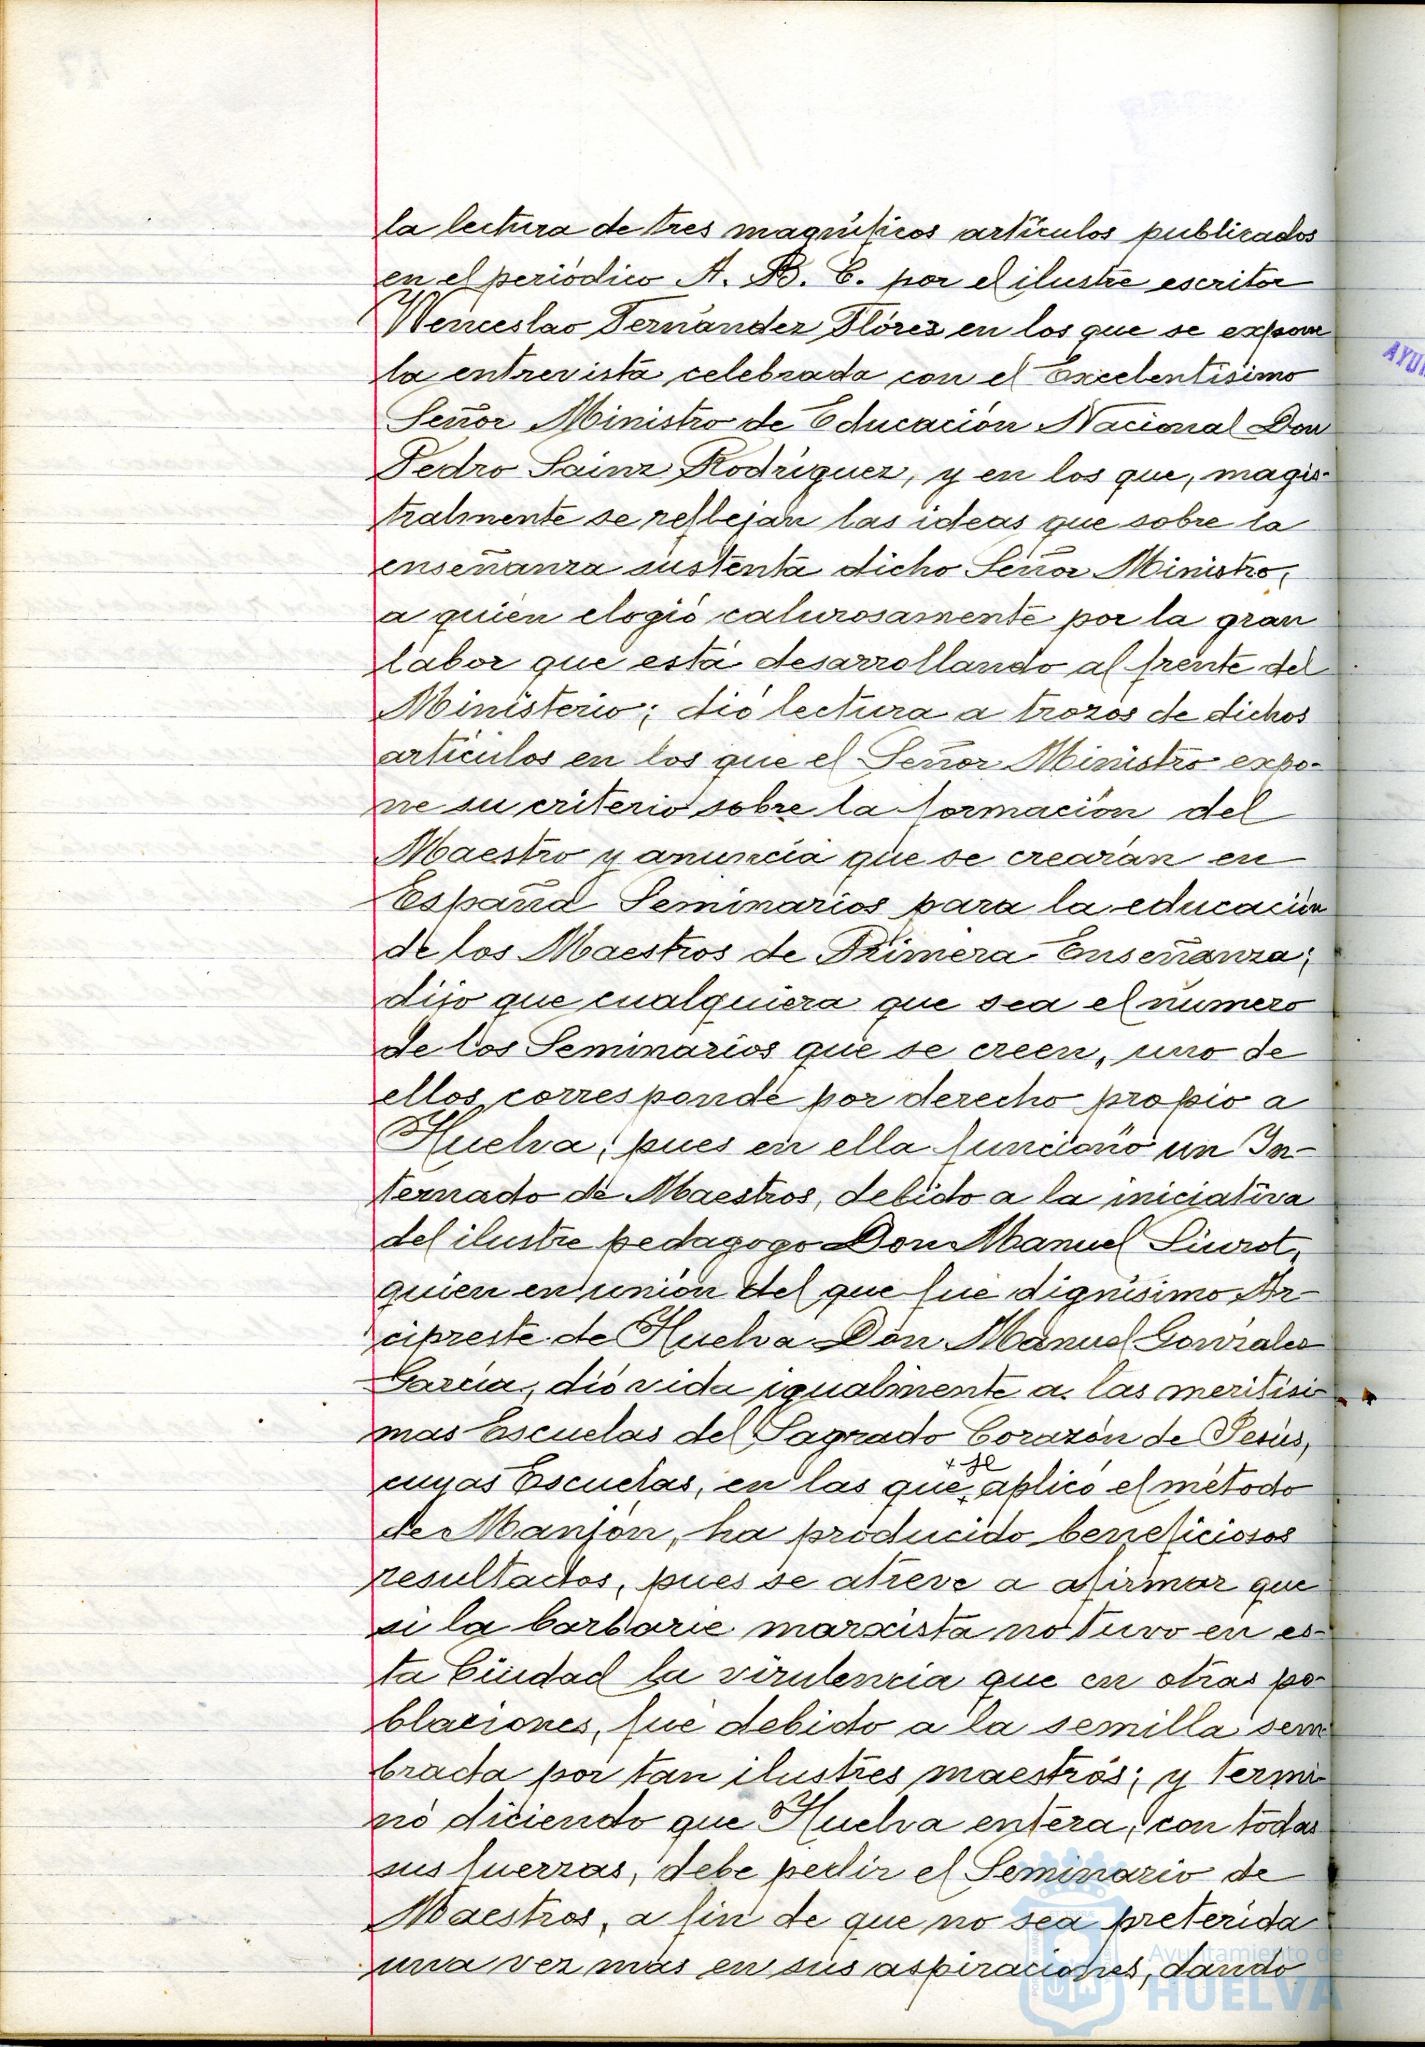 la lectura de tres magníficos artículos publicados
en el periódico A. B. C. por el ilustre escritor
Wenceslao Fernández Flórez en los que se expone
la entrevista celebrada con el Excelentísimo
Señor Ministro de Educación Nacional Don
Pedro Sainz Rodríguez, y en los que, magis-
tralmente se reflejan las ideas que sobre la
enseñanza sustenta dicho Señor Ministro,
a quien elogió calurosamente por la gran
labor que está desarrollando al frente del
Ministerio; dió lectura a trozos de dichos
artículos en los que el Señor Ministro expo-
ne su criterio sobre la formación del
Maestro y anuncia que se crearán en
España Seminarios para la educación
de los Maestros de Primera Enseñanza;
dijo que cualquiera que sea el número
de los Seminarios que se creen, uno de
ellos corresponde por derecho propio a
Huelva, pues en ella funcionó un In-
ternado de Maestros, debido a la iniciativa
del ilustre pedagogo Don Manuel Siurot,
quien en unión del que fué dignísimo Ar-
cipreste de Huelva Don Manuel González
García, dió vida igualmente a las meritísi-
mas Escuelas del Sagrado Corazón de Jesús,
cuyas Escuelas, en las que se aplicó el método
de Manjón, ha producido beneficiosos
resultados, pues se atreve a afirmar que
si la barbarie marxista no tuvo en es-
ta Ciudad la virulencia que en otras po-
blaciones, fué debido a la semilla sem
brada por tan ilustres maestros; y termi-
nó diciendo que Huelva entera, con todas
sus fuerzas, debe pedir el Seminario de
Maestros, a fin de que no sea preterida
una vez más en sus aspiraciones, dando
Ayuntamiento de
HUELVA